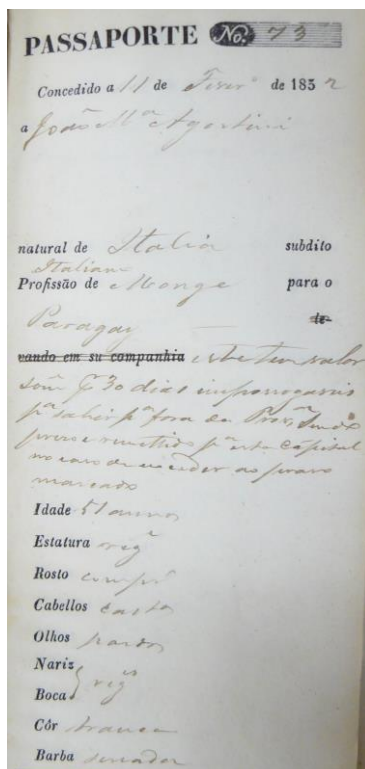 PASSAPORTE No. 73
Concedido a 11 de Fever.º de 1852
a João M.ª Agostini
natural de Italia subdito
Italiano
Profissão de Monge para o
Paragay le-
vando em su companhia este tem valor
som.e p.r 30 dias improrogaveis
p.ª sahir p.ª fora da Prov.ª, sendo
prezo e remettido p.ª esta Capital
no caso de exceder ao prazo
marcado
Idade 51 annos
Estatura reg.r
Rosto comp.do
Cabellos casto.s
Olhos pardos
Nariz
Boca } reg.s
Côr branca
Barba serrada